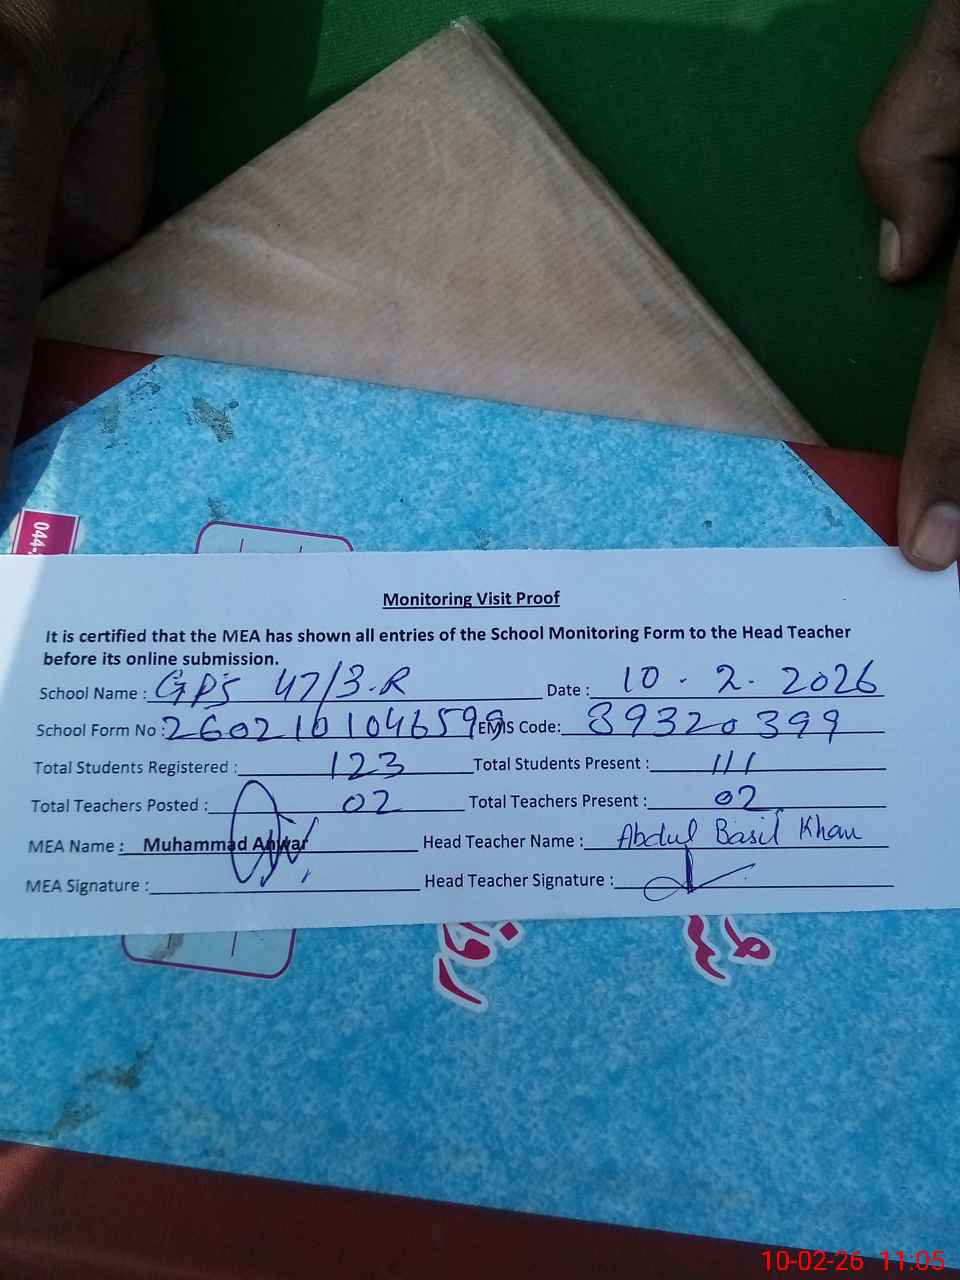 044-
Monitoring Visit Proof
It is certified that the MEA has shown all entries of the School Monitoring Form to the Head Teacher
before its online submission.
School Name : GPS 47/3.R Date : 10 . 2 . 2026
School Form No : 2602101046599 EMIS Code: 39320399
Total Students Registered : 123 Total Students Present : 111
Total Teachers Posted : 02 Total Teachers Present : 02
MEA Name : Muhammad Anwar Head Teacher Name : Abdul Basil Khan
MEA Signature : Head Teacher Signature :
10-02-26 11:05